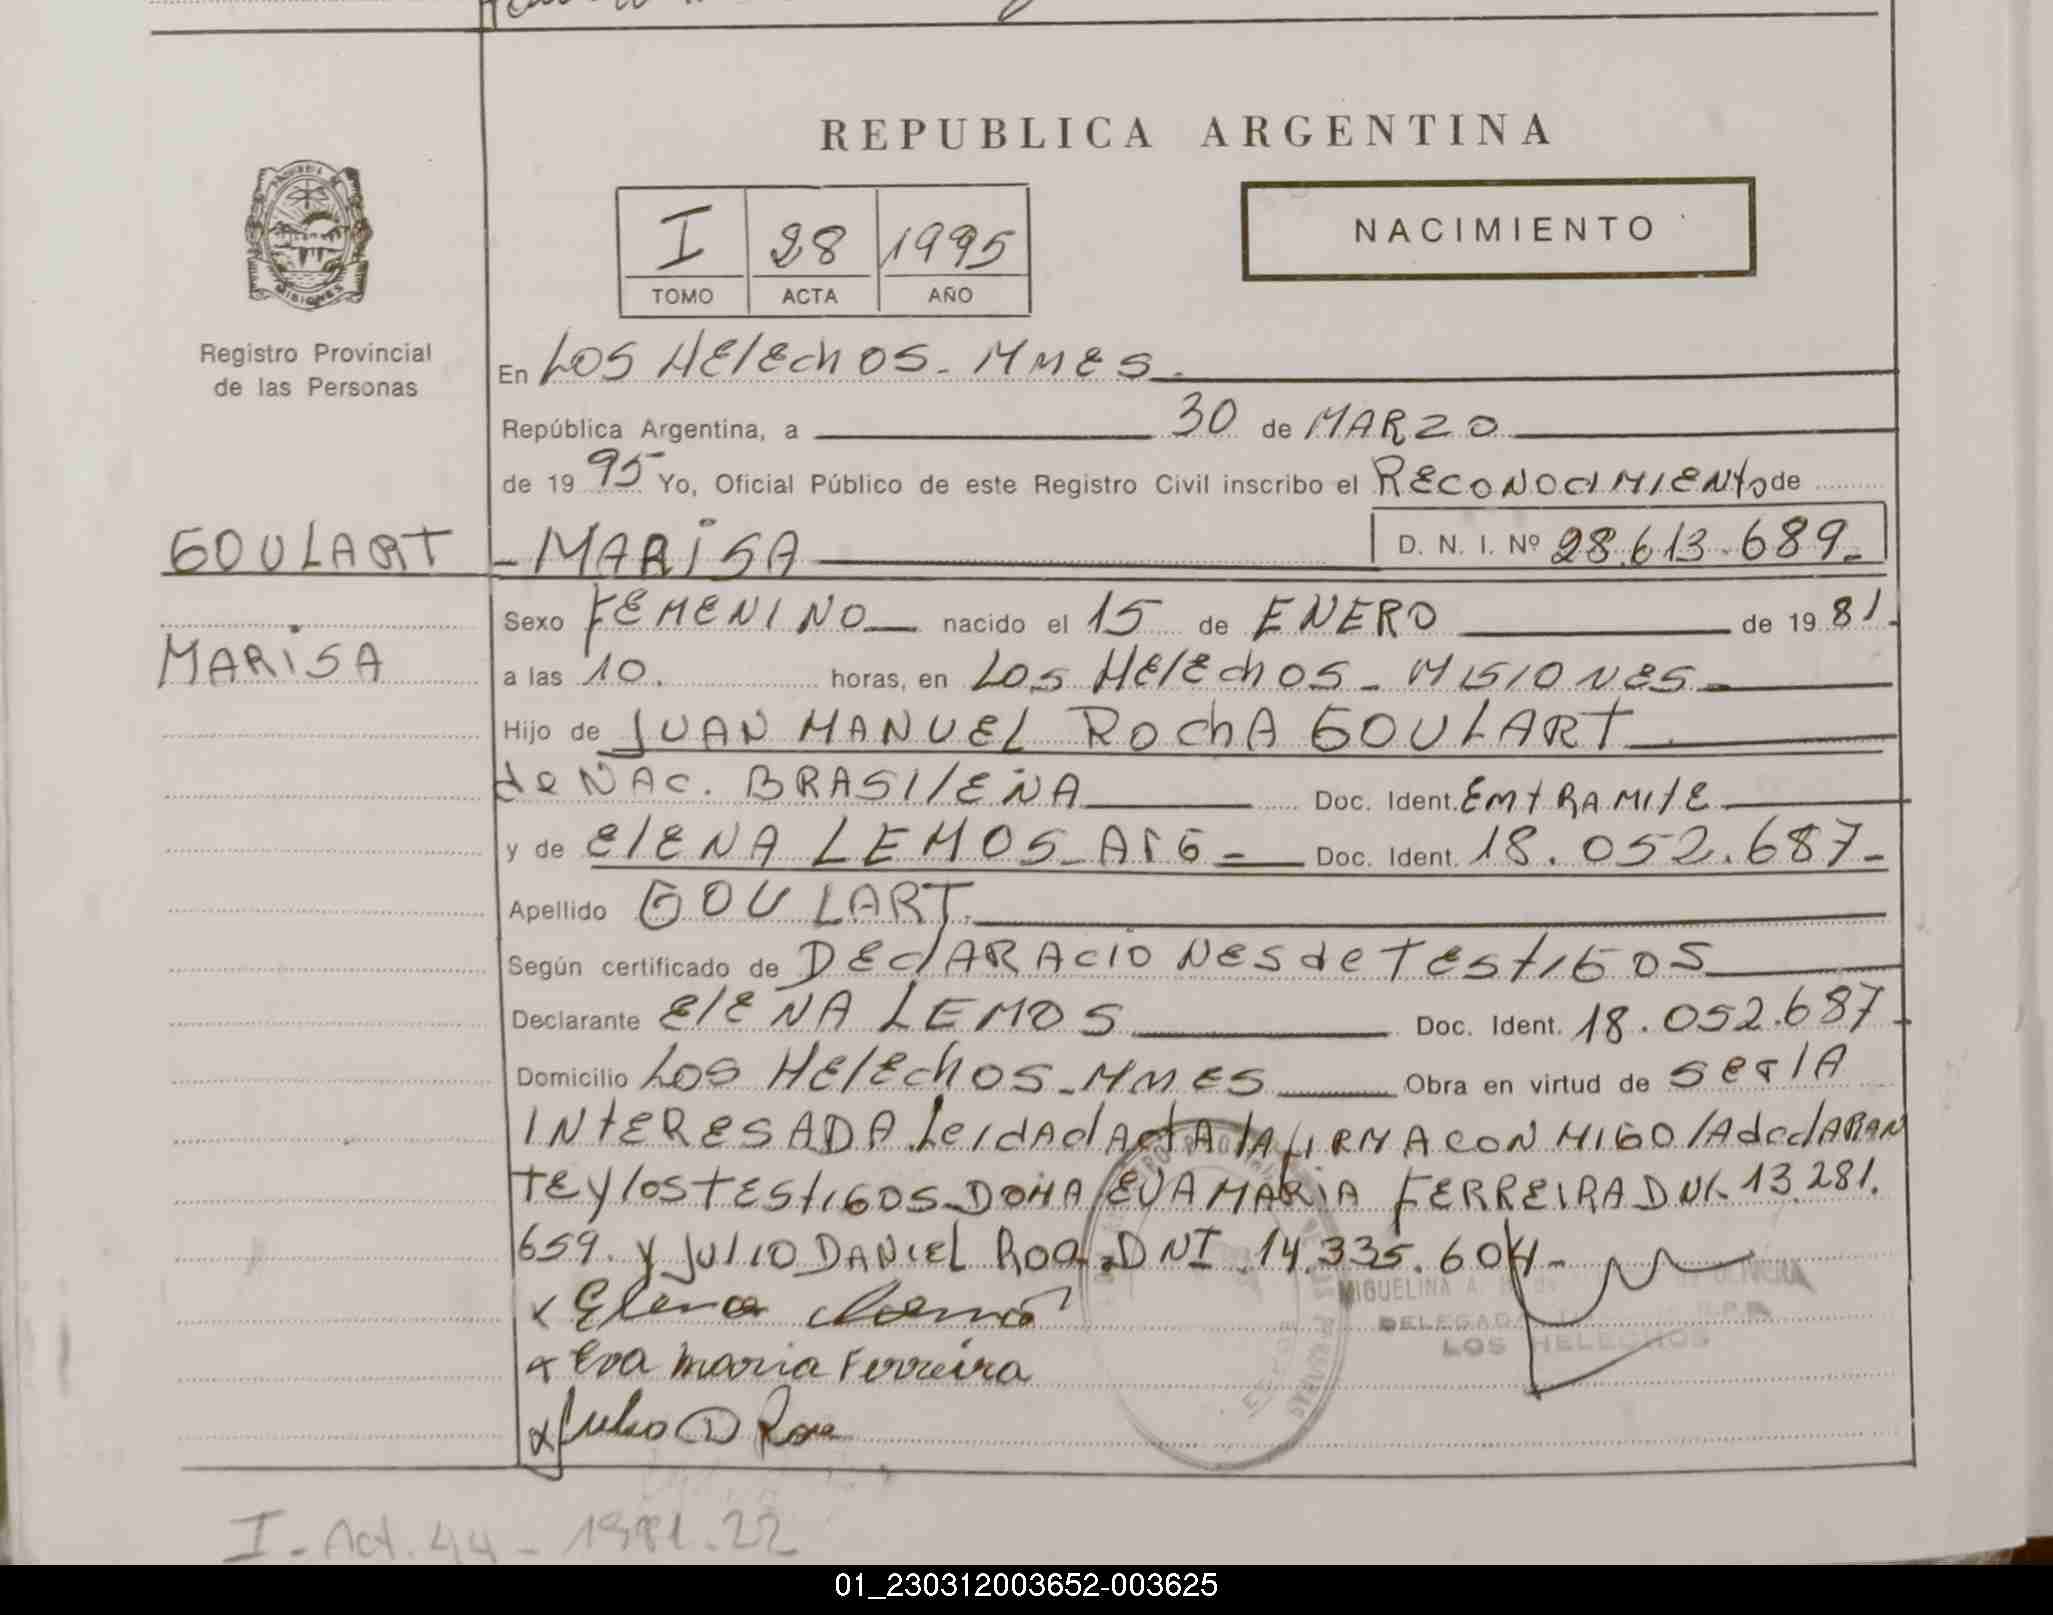 REPUBLICA ARGENTINA
I 28 1995
TOMO ACTA AÑO
NACIMIENTO
MISIONES
Registro Provincial
de las Personas
En LOS HElEchOS - MMES -
República Argentina, a 30 de MARZO
de 19 95 Yo, Oficial Público de este Registro Civil inscribo el RECONOCIMIENto de
GOULART
MARISA
- MARiSA D. N. I. Nº 28.613.689 -
Sexo FEMENINO nacido el 15 de ENERO de 19 81
a las 10. horas, en LOS HElEchOS - MISIONES -
Hijo de JUAN MANUEL ROchA GOULART
de NAc. BRASIlEÑA Doc. Ident. EMtRAMItE
y de ElENA LEMOS - ArG - Doc. Ident. 18.052.687 -
Apellido GOULART
Según certificado de DEclARAcIONES de TEStIGOS
Declarante ElENA LEMOS Doc. Ident. 18.052.687
Domicilio LOS HElEchOS - MMES Obra en virtud de SErlA
INtERESADA. LeIdA el ActA lA fIRMA CON MIGO lA declARAN
TE y los TEStIGOS - DOÑA EVA MARiA FERREIRA DNI. 13.281.
659. y JulIO DANIEL ROA. DNI. 14.335.604 -
x Elena Lemos
x Eva maria Ferreira
x Julio D Roa
MIGUELINA A.
DELEGADA
LOS HELECHOS
I - Act. 44 - 1981. 22
01_230312003652-003625